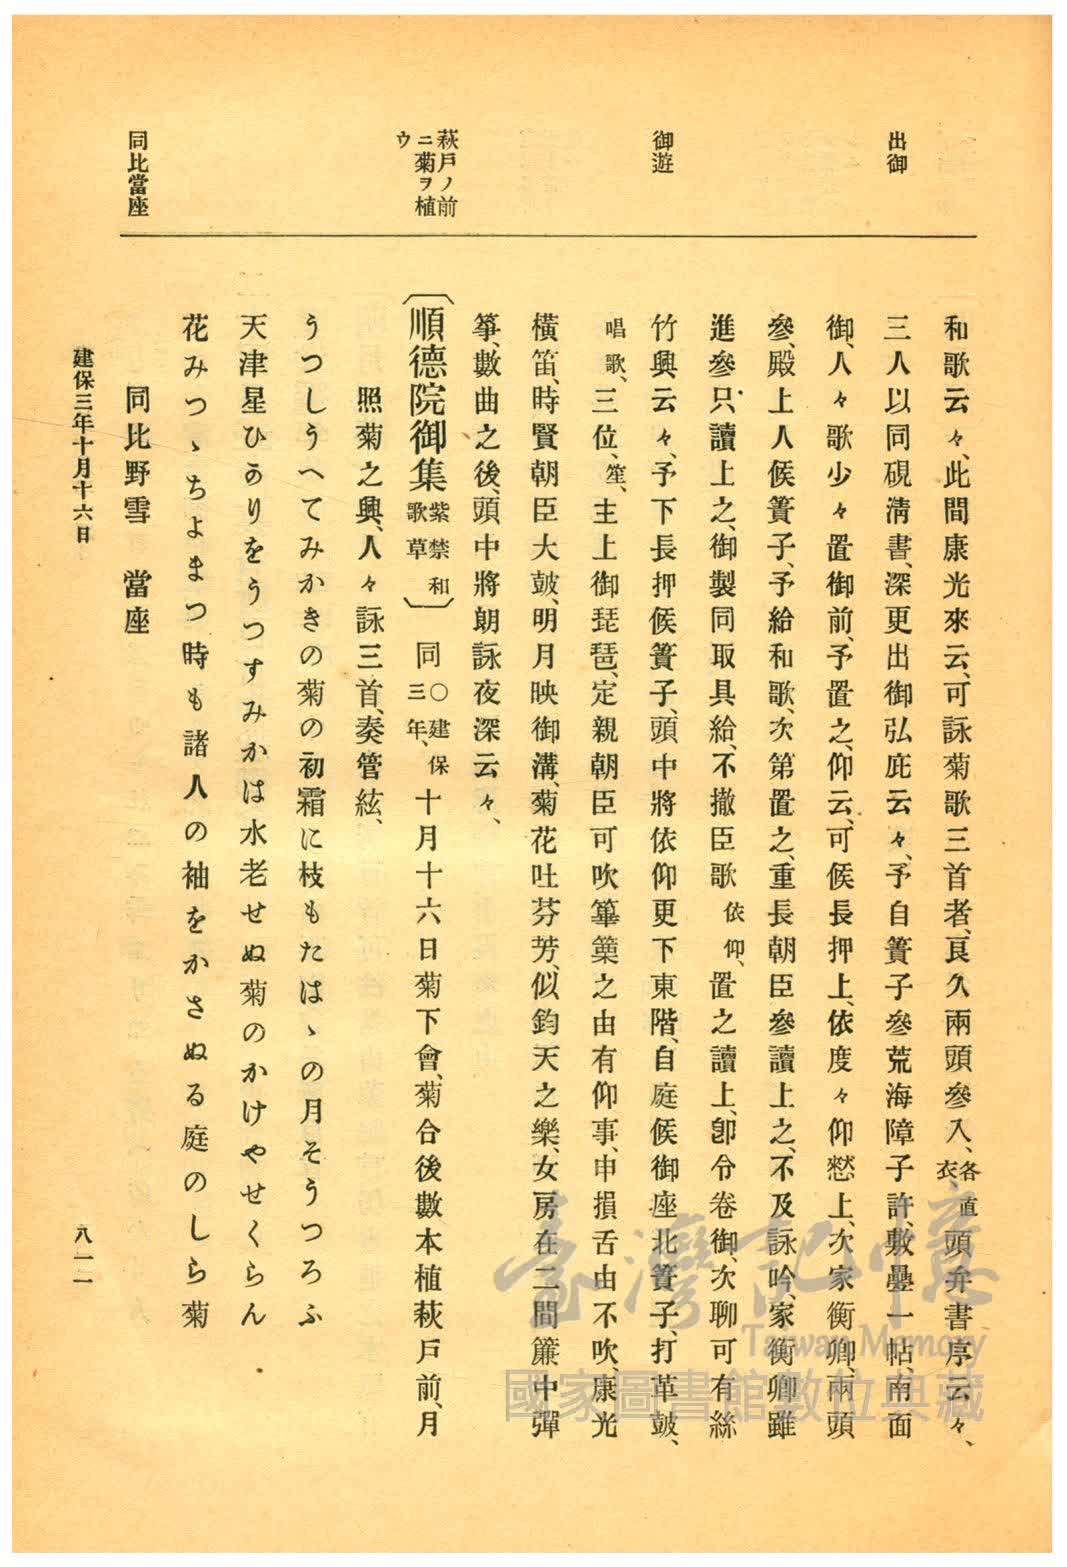 出御
和歌云々、此間康光來云、可詠菊歌三首者、良久兩頭參入、各直衣、頭弁書序云々、
三人以同硯淸書、深更出御弘庇云々、予自簀子參荒海障子許、敷疊一帖、南面
御、人々歌少々置御前、予置之、仰云、可候長押上、依度々仰憖上、次家衡卿、兩頭
參、殿上人候簀子、予給和歌、次第置之、重長朝臣參讀上之、不及詠吟、家衡卿雖
進參只讀上之、御製同取具給、不撤臣歌依仰、置之讀上、卽令卷御、次聊可有絲
御遊
竹興云々、予下長押候簀子、頭中將依仰更下東階、自庭候御座北簀子、打革皷、
唱歌、三位、笙、主上御琵琶、定親朝臣可吹篳篥之由有仰事、申損舌由不吹、康光
橫笛、時賢朝臣大皷、明月映御溝、菊花吐芬芳、似鈞天之樂、女房在二間簾中彈
箏、數曲之後、頭中將朗詠夜深云々、
萩戸ノ前ニ菊ヲ植ウ
〔順德院御集紫禁和歌草〕 同○建保三年、十月十六日菊下會、菊合後數本植萩戸前、月
照菊之興、人々詠三首、奏管絃、
うつしうへてみかきの菊の初霜に枝もたはゝの月そうつろふ
天津星ひかりをうつすみかは水老せぬ菊のかけやせくらん
花みつゝちよまつ時も諸人の袖をかさぬる庭のしら菊
同比當座
同比野雪 當座
建保三年十月十六日
八一一
臺灣記憶
Taiwan Memory
國家圖書館數位典藏